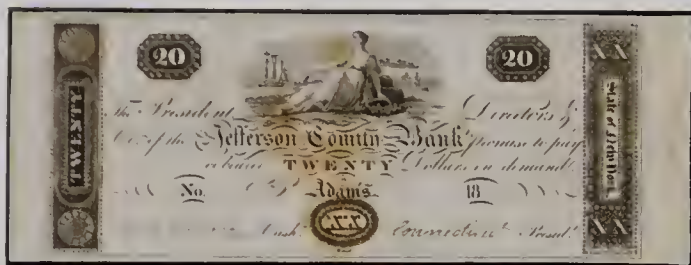 20 20
XX
TWENTY
State of New York
the President Directors &
Co. of the Jefferson County Bank promise to pay
TWENTY Dollars on demand
No. Adams 18
XX
Cash. Connecticut Presid.
XX